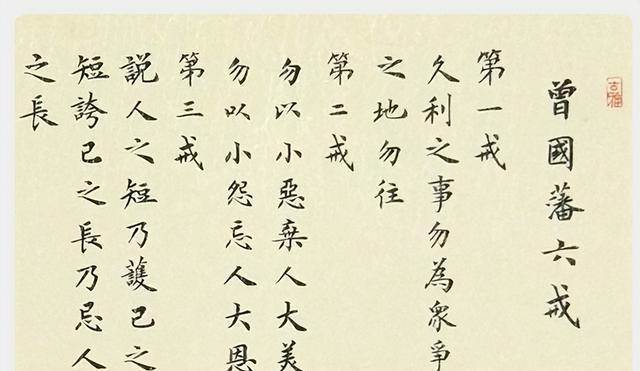 曾國藩六戒
第一戒
久利之事勿為衆爭
之地勿往
第二戒
勿以小惡棄人大美
勿以小怨忘人大恩
第三戒
說人之短乃護己之
短誇己之長乃忌人
之長